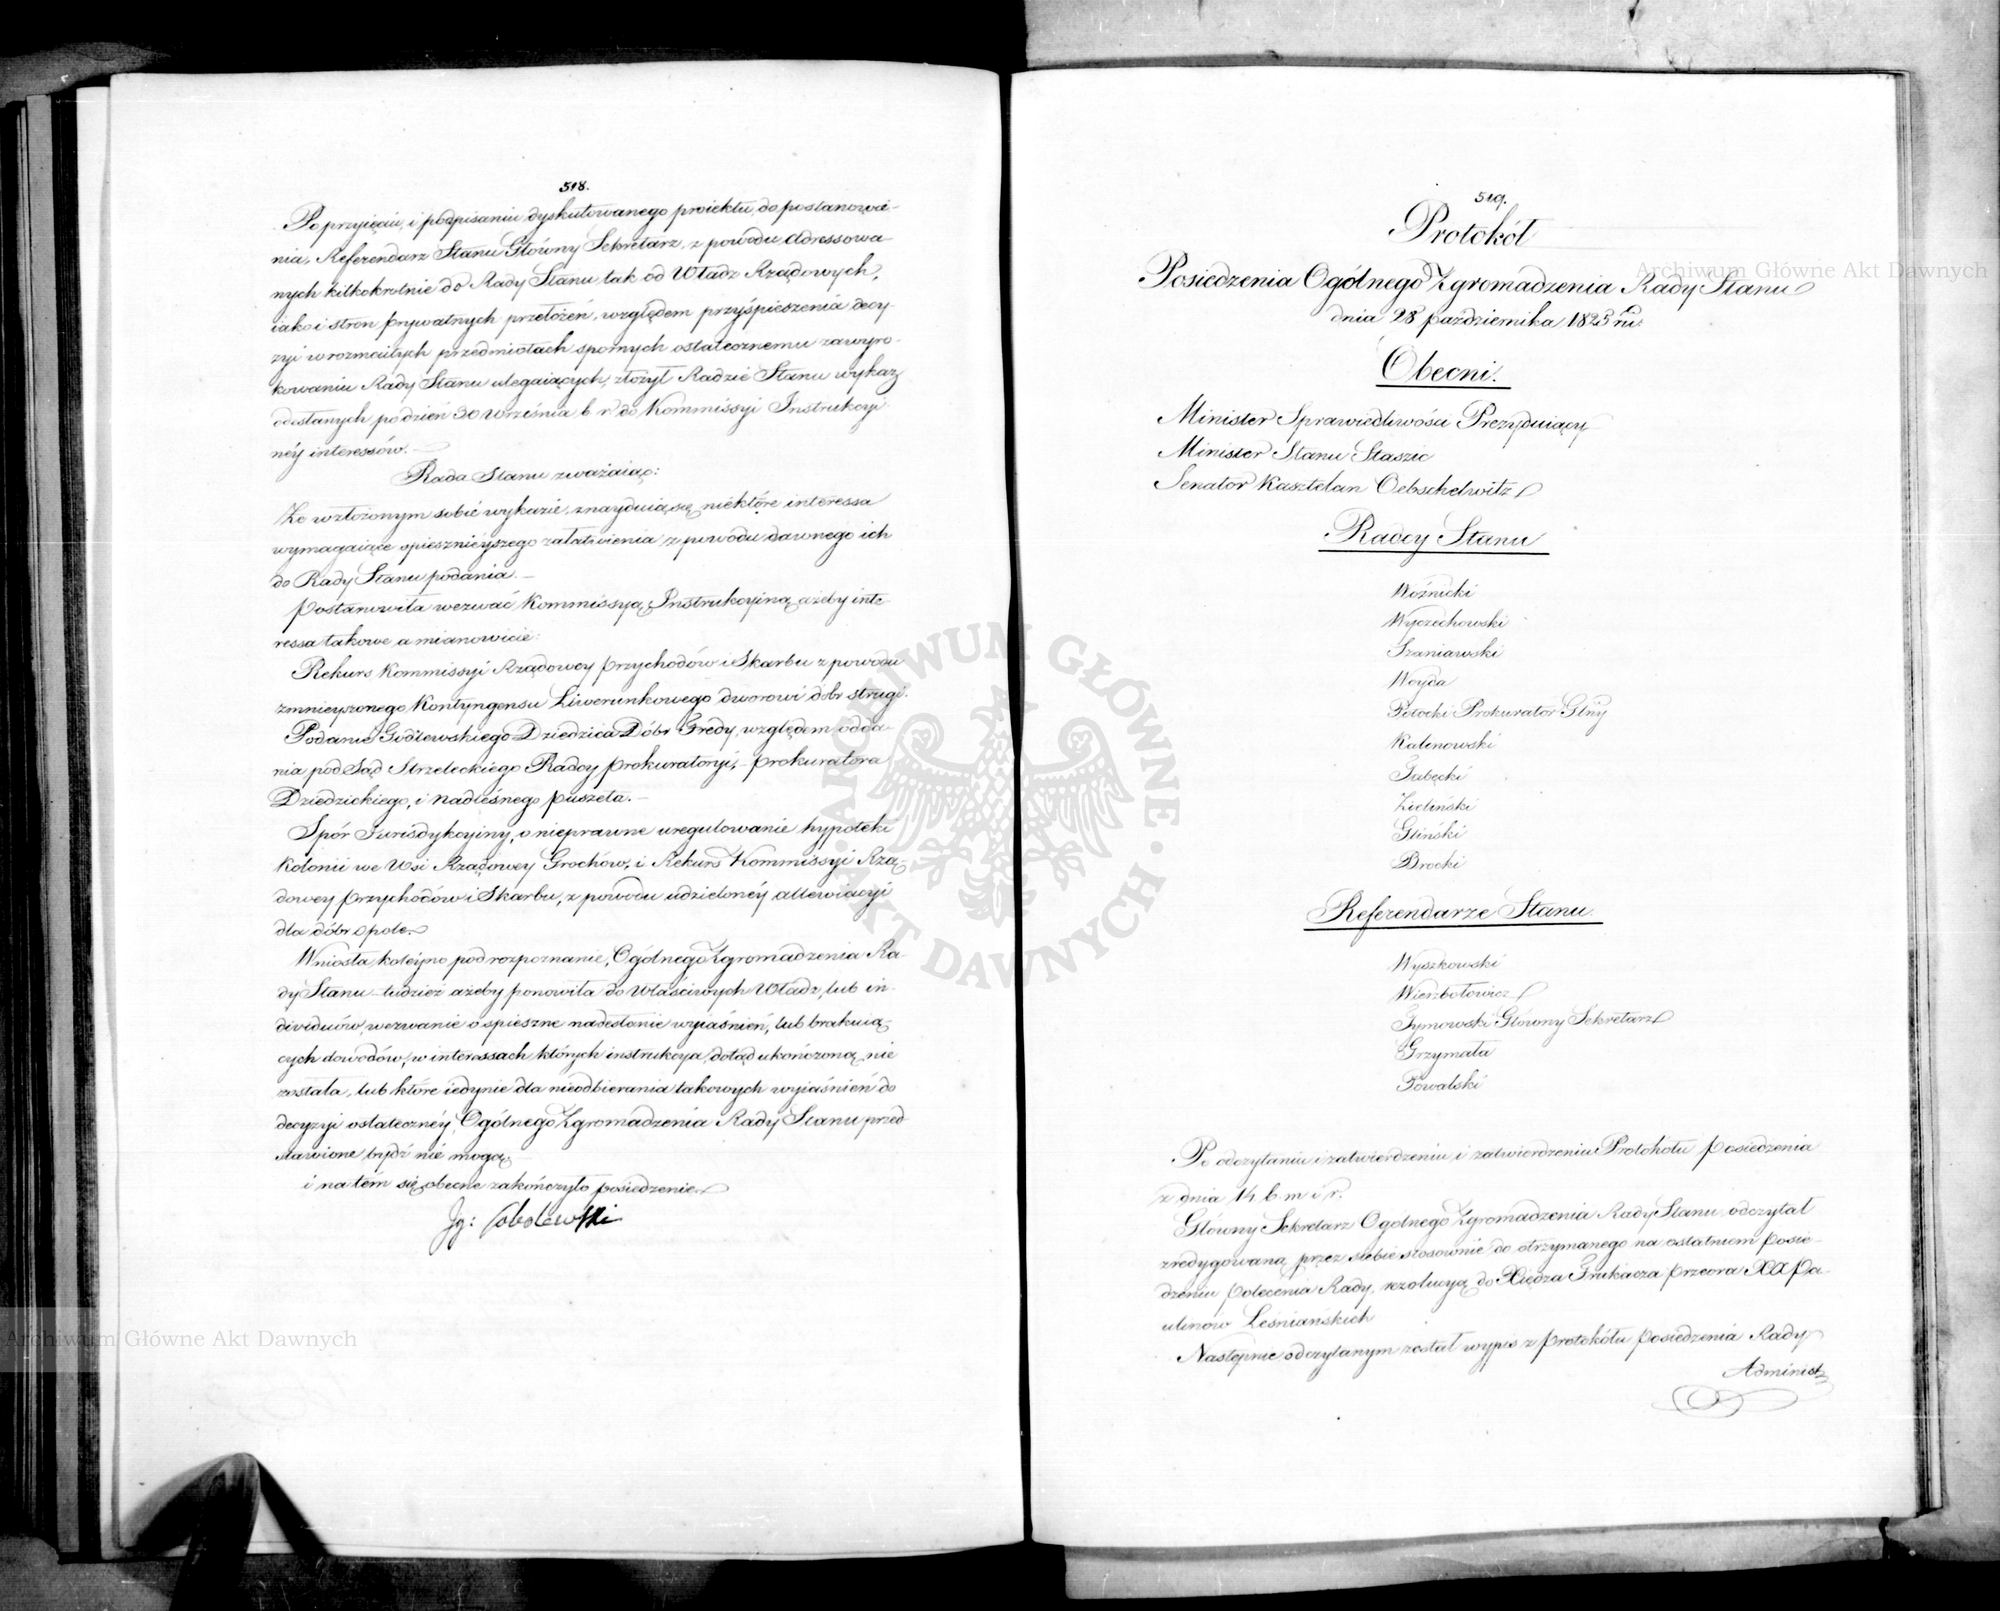 518.
Po przyięciu, i podpisaniu dyskutowanego proiektu, do postanowie-
nia, Referendarz Stanu Główny Sekretarz, z powodu adressowa-
nych kilkokrotnie do Rady Stanu tak od Władz Rządowych,
iako i stron prywatnych przełożeń, względem przyśpieszenia decy-
zyi w rozmaitych przedmiotach spornych ostatecznemu zawyro-
kowaniu Rady Stanu ulegaiących, złożył Radzie Stanu wykaz
odesłanych po dzień 30 Września b. r. do Kommissyi Instrukcyi
néy interessów. —
Rada Stanu zważaiąc:
Że w złożonym sobie wykazie, znayduią się niektóre interessa
wymagaiące spieszniéyszego załatwienia z powodu dawnego ich
do Rady Stanu podania. —
Postanowiła wezwać Kommissyą Instrukcyiną, ażeby inte-
ressa takowe a mianowicie:
Rekurs Kommissyi Rządowey Przychodów i Skarbu z powodu
zmnieyszonego Kontyngensu Liwerunkowego dworowi dóbr Strugi.
Podanie Godlewskiego Dziedzica Dóbr Gredy, względem odda-
nia pod Sąd Strzeleckiego Radcy Prokuratoryi, – Prokuratora
Dziedzickiego, i Nadleśnego Puszeta. —
Spór Jurisdykcyiny, o nieprawne uregulowanie hypoteki
Kolonii we Wsi Rządowey Grochów, i Rekurs Kommissyi Rzą-
dowey Przychodów i Skarbu, z powodu udzielonéy allewiacyi
dla dóbr Opole.
Wniosła koléyno pod rozpoznanie, Ogólnego Zgromadzenia Ra-
dy Stanu – tudzież ażeby ponowiła do Właściwych Władz, lub in-
dividuów, wezwanie o spieszne nadesłanie wyiaśnień, lub brakuią-
cych dowodów, w interessach których instrukcya, dotąd ukończoną nie
została, lub które iedynie dla nieodbierania takowych wyiaśnień do
decyzyi ostatecznéy, Ogólnego Zgromadzenia Rady Stanu przed
stawione bydź nie mogą.
i na tém się obecne zakończyło posiedzenie.
Ig: Sobolewski
519.
Protokół
Posiedzenia Ogólnego Zgromadzenia Rady Stanu
dnia 28 października 1823 ru.
Obecni.
Minister Sprawiedliwości Prezyduiący
Minister Stanu Staszic
Senator Kasztelan Oebschelwitz
Radcy Stanu
Woźnicki
Wyczechowski
Szaniawski
Woyda
Potocki Prokurator Glny
Kalinowski
Gabęcki
Zieliński
Gliński
Brocki
Referendarze Stanu.
Wyszkowski
Wierzbołowicz
Tymowski Główny Sekretarz
Grzymała
Kowalski
Po odczytaniu i zatwierdzeniu i zatwierdzeniu Protokołu posiedzenia
z dnia 14 b. m. i r.
Główny Sekretarz Ogólnego Zgromadzenia Rady Stanu odczytał
zredygowaną przez siebie stosownie do otrzymanego na ostatniem posie-
dzeniu polecenia Rady, rezolucyą do Xiędza Przeora XX Pa-
ulinów Leśniańskich
Następnie odczytanym został wypis z protokółu posiedzenia Rady
Administ
Archiwum Główne Akt Dawnych
Archiwum Główne Akt Dawnych
ARCHIWUM GŁÓWNE · AKT DAWNYCH ·